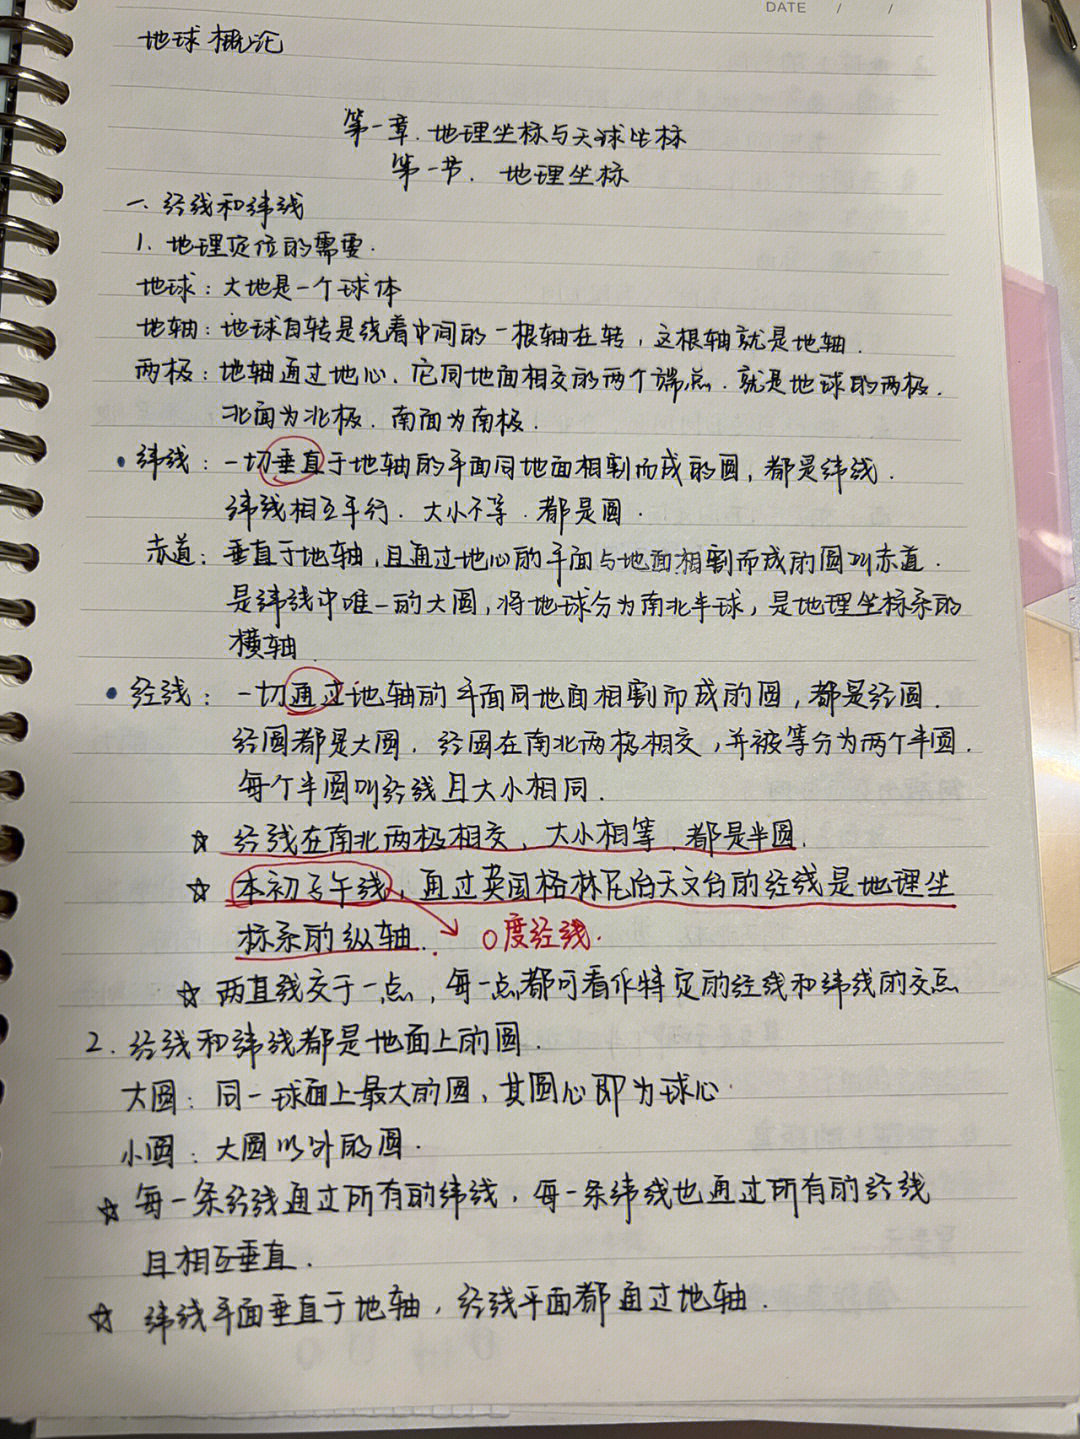 DATE / /
地球概论
第一章.地理坐标与天球坐标
第一节.地理坐标
一.经线和纬线
1.地理定位的需要.
地球:大地是一个球体
地轴:地球自转是绕着中间的一根轴在转,这根轴就是地轴.
两极:地轴通过地心、它同地面相交的两个端点.就是地球的两极.
北面为北极.南面为南极.
•纬线:一切垂直于地轴的平面同地面相割而成的圆,都是纬线.
纬线相互平行.大小不等.都是圆.
赤道:垂直于地轴,且通过地心的平面与地面相割而成的圆叫赤道.
是纬线中唯一的大圆,将地球分为南北半球,是地理坐标系的
横轴.
•经线:一切通过地轴的平面同地面相割而成的圆,都是经圆.
经圆都是大圆.经圆在南北两极相交,并被等分为两个半圆.
每个半圆叫经线且大小相同.
☆经线在南北两极相交、大小相等.都是半圆.
☆本初子午线,通过英国格林尼治天文台的经线是地理坐
标系的纵轴. 0度经线.
☆两直线交于一点,每一点都可看作特定的经线和纬线的交点
2.经线和纬线都是地面上的圆.
大圆:同一球面上最大的圆,其圆心即为球心.
小圆:大圆以外的圆.
☆每一条经线通过所有的纬线,每一条纬线也通过所有的经线
且相互垂直.
☆纬线平面垂直于地轴,经线平面都通过地轴.